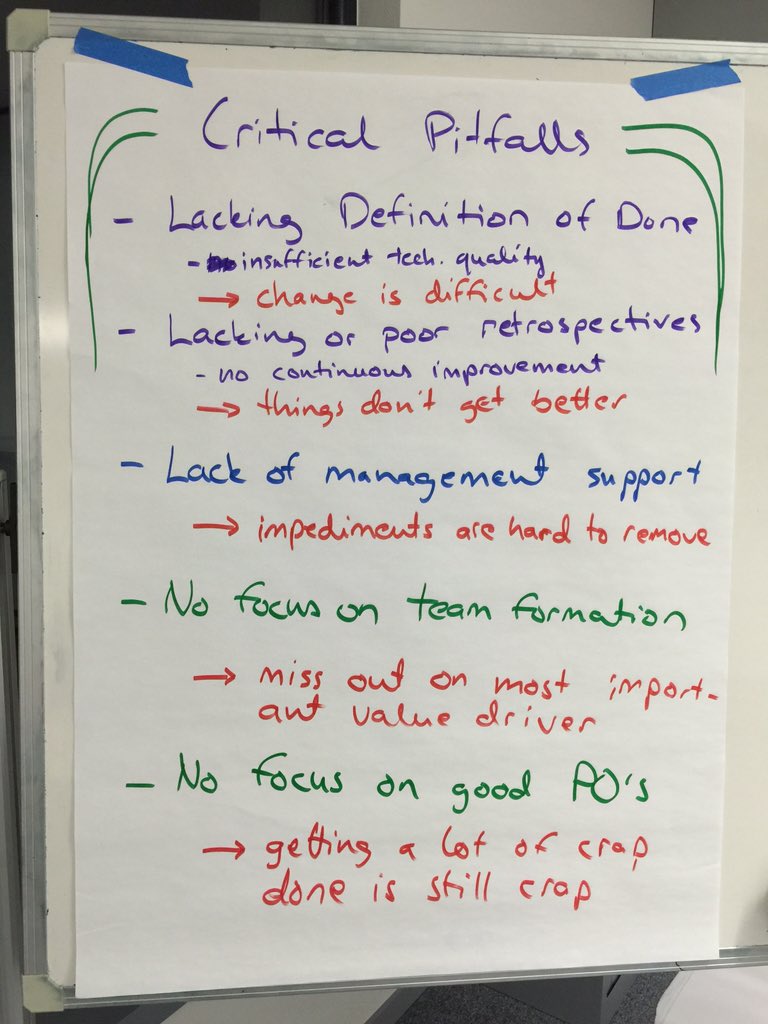 Critical Pitfalls
- Lacking Definition of Done
- insufficient tech. quality
→ change is difficult
- Lacking or poor retrospectives
- no continuous improvement
→ things don't get better
- Lack of management support
→ impediments are hard to remove
- No focus on team formation
→ miss out on most import-
ant value driver
- No focus on good PO's
→ getting a lot of crap
done is still crap